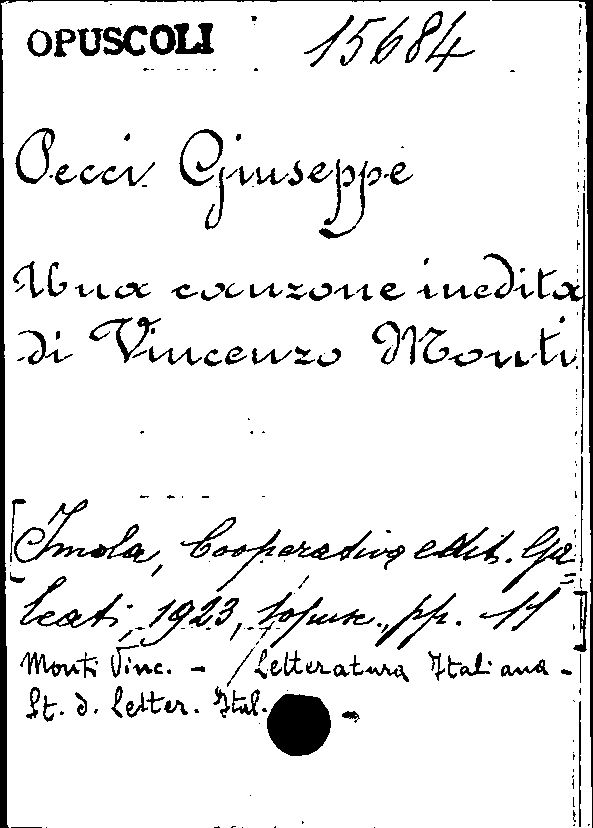 OPUSCOLI 15684
Pecci Giuseppe
Una canzone inedita
di Vincenzo Monti
[Imola, Cooperativa edit. Ga=
leati, 1923, 1 opusc., pp. 11]
Monti Vinc. - / Letteratura Italiana -
St. d. Letter. Ital. -